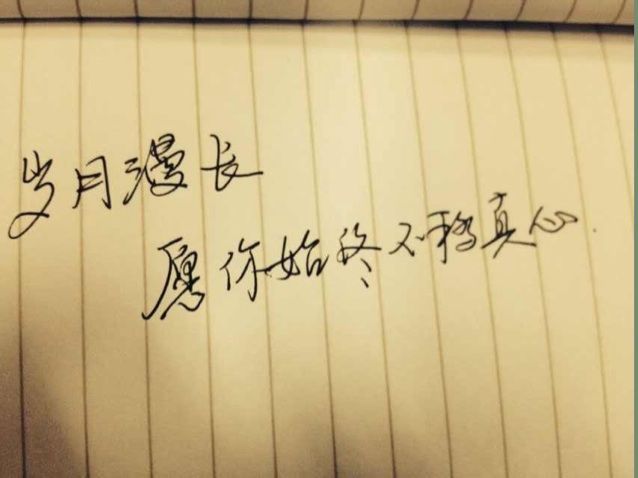 岁月漫长
愿你始终不移真心.